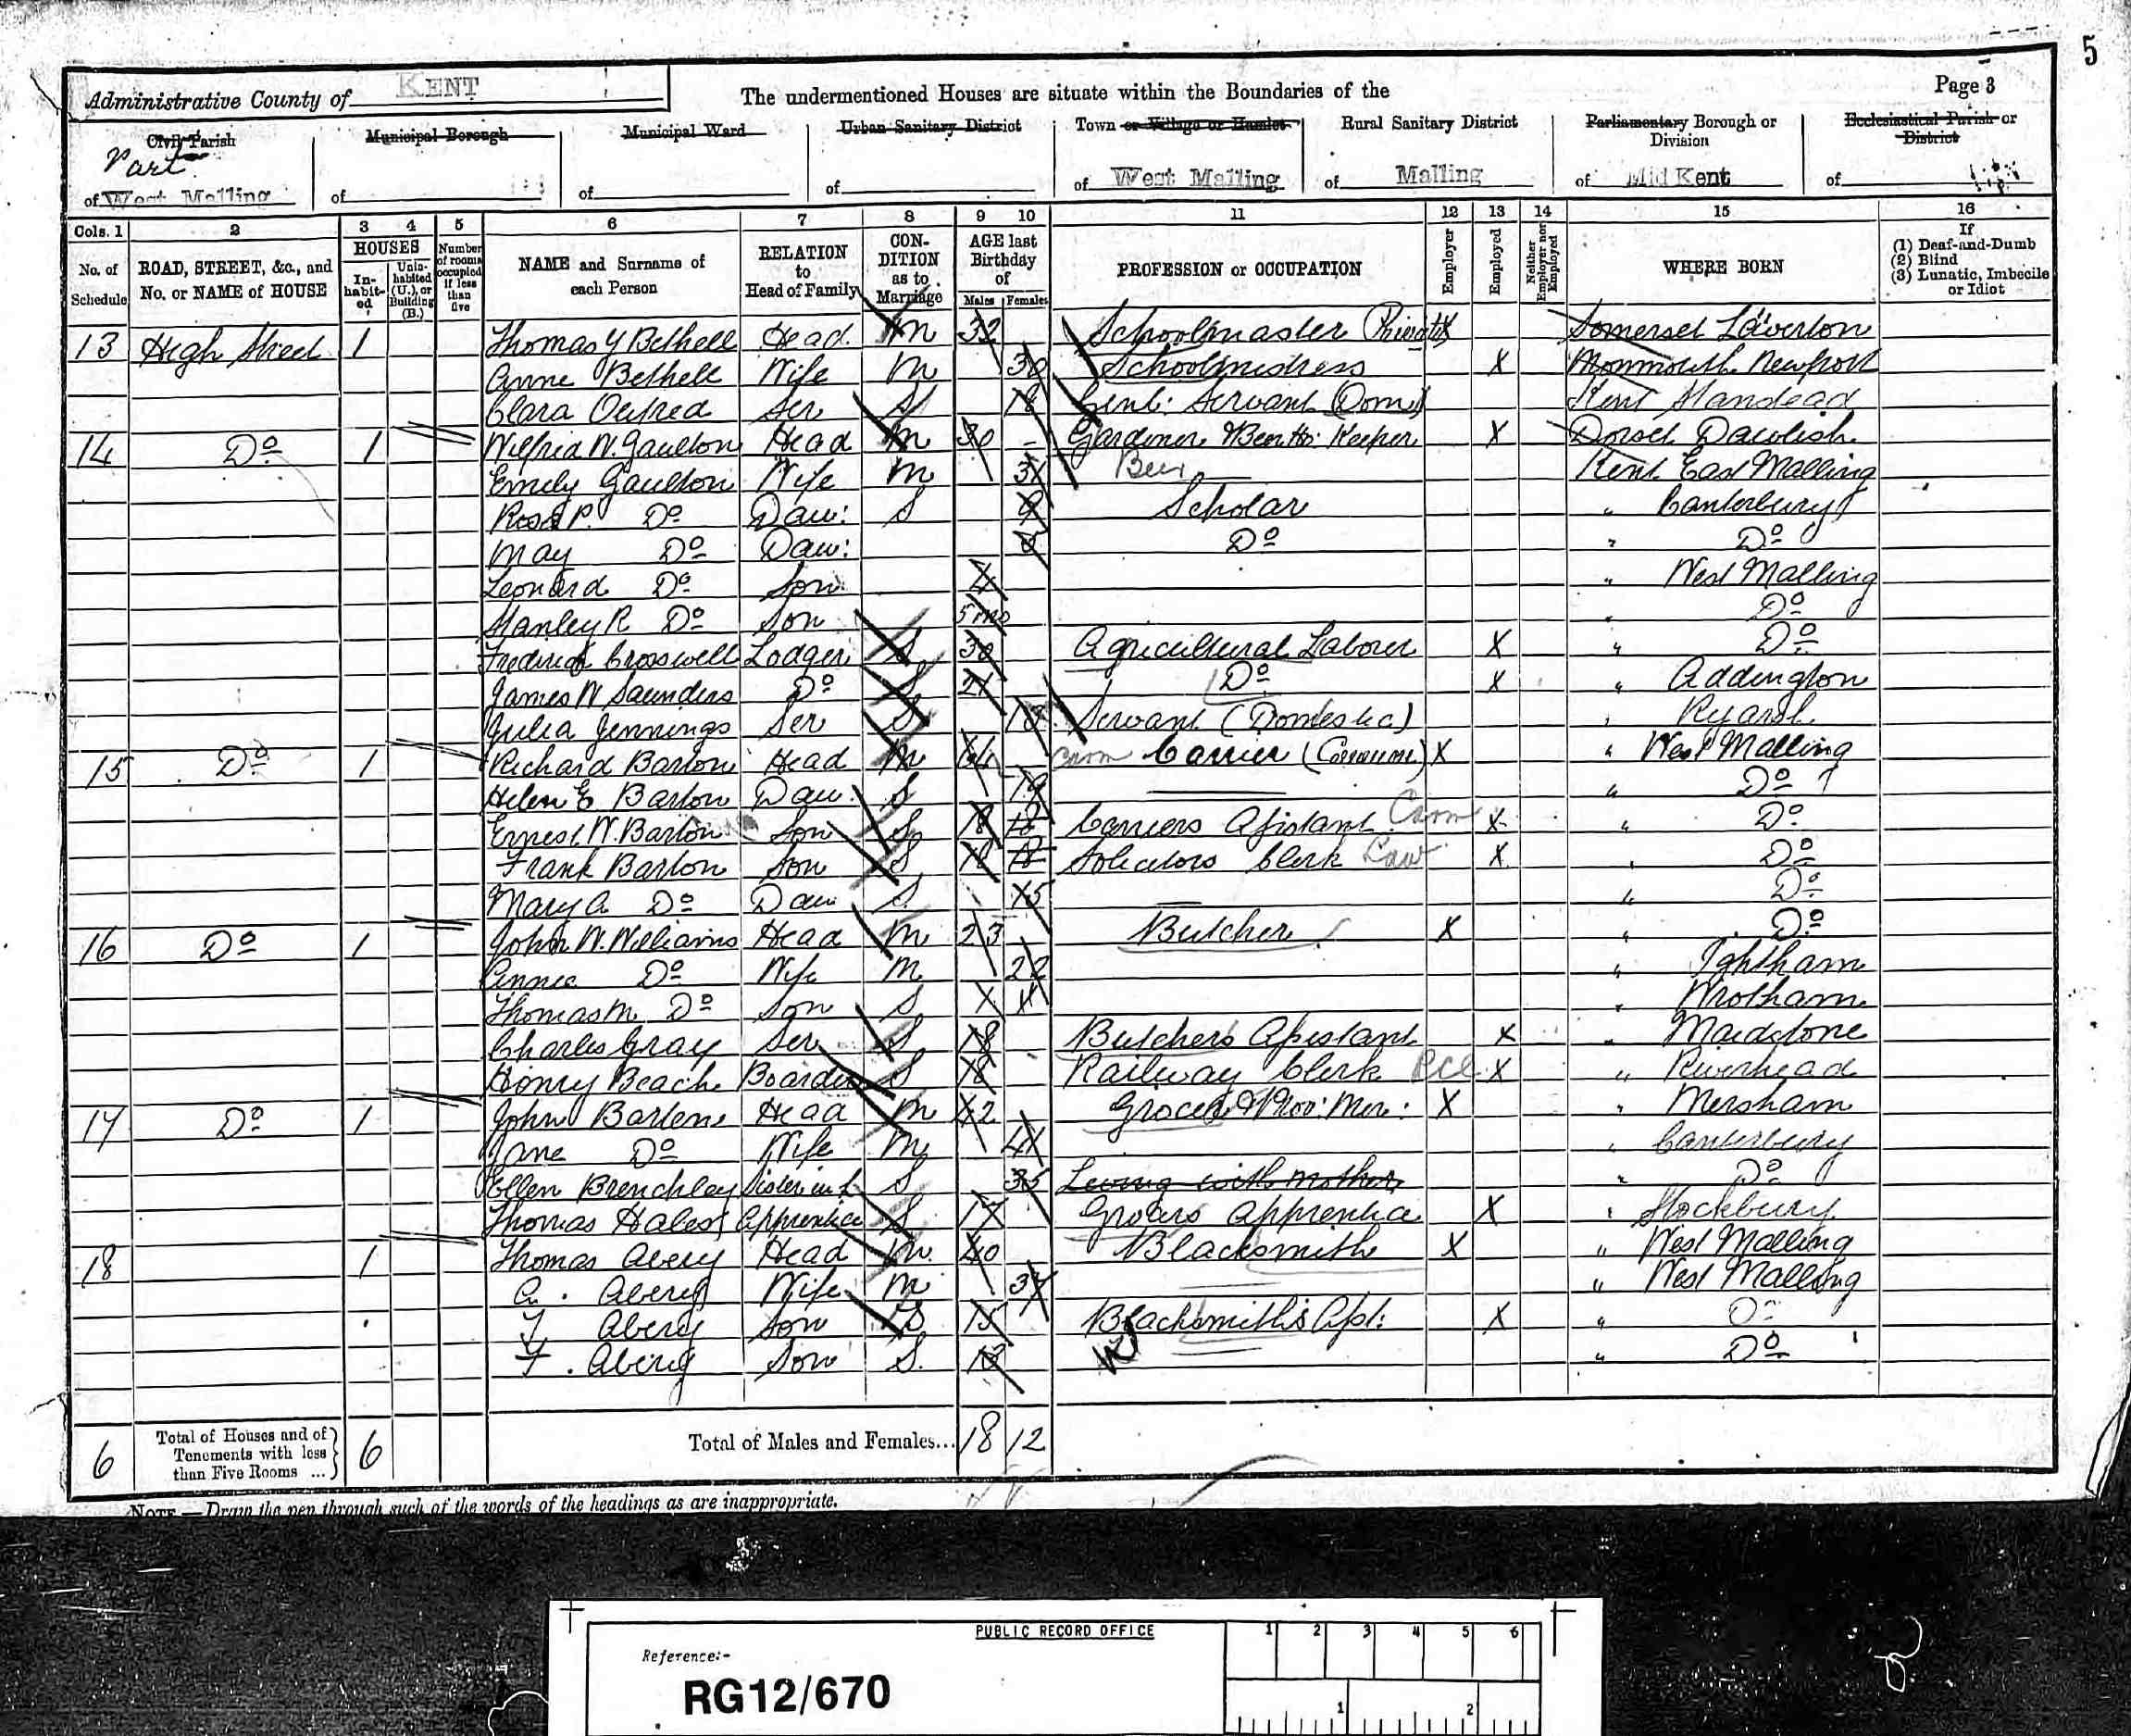 5
Administrative County of KENT
The undermentioned Houses are situate within the Boundaries of the
Page 3
Civil Parish
Part
of West Malling
Municipal Borough
of
Municipal Ward
of
Urban Sanitary District
of
Town or Village or Hamlet
of West Malling
Rural Sanitary District
of Malling
Parliamentary Borough or Division
of Mid Kent
Ecclesiastical Parish or District
of
Cols. 1 2 3 4 5 6 7 8 9 10 11 12 13 14 15 16
No. of Schedule
ROAD, STREET, &c., and No. or NAME of HOUSE
HOUSES
In-habit-ed
Unin-habited (U.), or Building (B.)
Number of rooms occupied if less than five
NAME and Surname of each Person
RELATION to Head of Family
CON-DITION as to Marriage
AGE last Birthday of
Males Females
PROFESSION or OCCUPATION
Employer
Employed
Neither Employer nor Employed
WHERE BORN
If (1) Deaf-and-Dumb (2) Blind (3) Lunatic, Imbecile or Idiot
13 High Street 1 Thomas Y Bethell Head M 32 Schoolmaster Private X Somerset Laverton
Anne Bethell Wife M Schoolmistress X Monmouth Newport
Clara Ser S 18 Genl: Servant (Dom) Kent Stansead
14 Do 1 Wilfrid W. Gaulton Head M 30 Gardiner & Beer Ho: Keeper X Dorset Dawlish
Emily Gaulton Wife M 31 Beer Kent East Malling
Rose P. Do Daw: S 9 Scholar " Canterbury
May Do Daw: Do " Do
Leonard Do Son 4 " West Malling
Stanley R Do Son 5 mo " Do
Frederick Crosswell Lodger S 30 Agricultural Laborer X " Do
James W Saunders Do S 21 Do X " Addington
Julia Jennings Ser S 18 Servant (Domestic) " Ryarsh
15 Do 1 Richard Barton Head M 64 Carrier X " West Malling
Helen E Barton Daw. S 19 " Do
Ernest W. Barton Son S 18 Carriers Assistant X " Do
Frank Barton Son S 18 Solicitors Clerk Law X " Do
Mary A Do Daw S 15 " Do
16 Do 1 John W. Williams Head M 23 Butcher X " Do
Annie Do Wife M 22 " Ightham
Thomas M. Do Son S " Wrotham
Charles Gray Ser S 18 Butchers Assistant X " Maidstone
Henry Beach Boarder S 18 Railway Clerk X " Riverhead
17 Do 1 John Head M 42 Grocer & Prov: Mer: X " Mersham
Jane Do Wife M 41 " Canterbury
Ellen Brenchley Sister in L S 35 Living with mother " Do
Thomas Apprentice S 17 Grocers Apprentice X " Stockbury
18 1 Thomas Avery Head M 40 Blacksmith X " West Malling
A. Avery Wife M " West Malling
T. Avery Son S 15 Blacksmith's Asst: X " Do
F. Avery Son S. 13 " Do
6 Total of Houses and of Tenements with less than Five Rooms ... 6 Total of Males and Females... 18 12
NOTE.—Draw the pen through such of the words of the headings as are inappropriate.
PUBLIC RECORD OFFICE
1 2 3 4 5 6
Reference:-
RG12/670
1 2